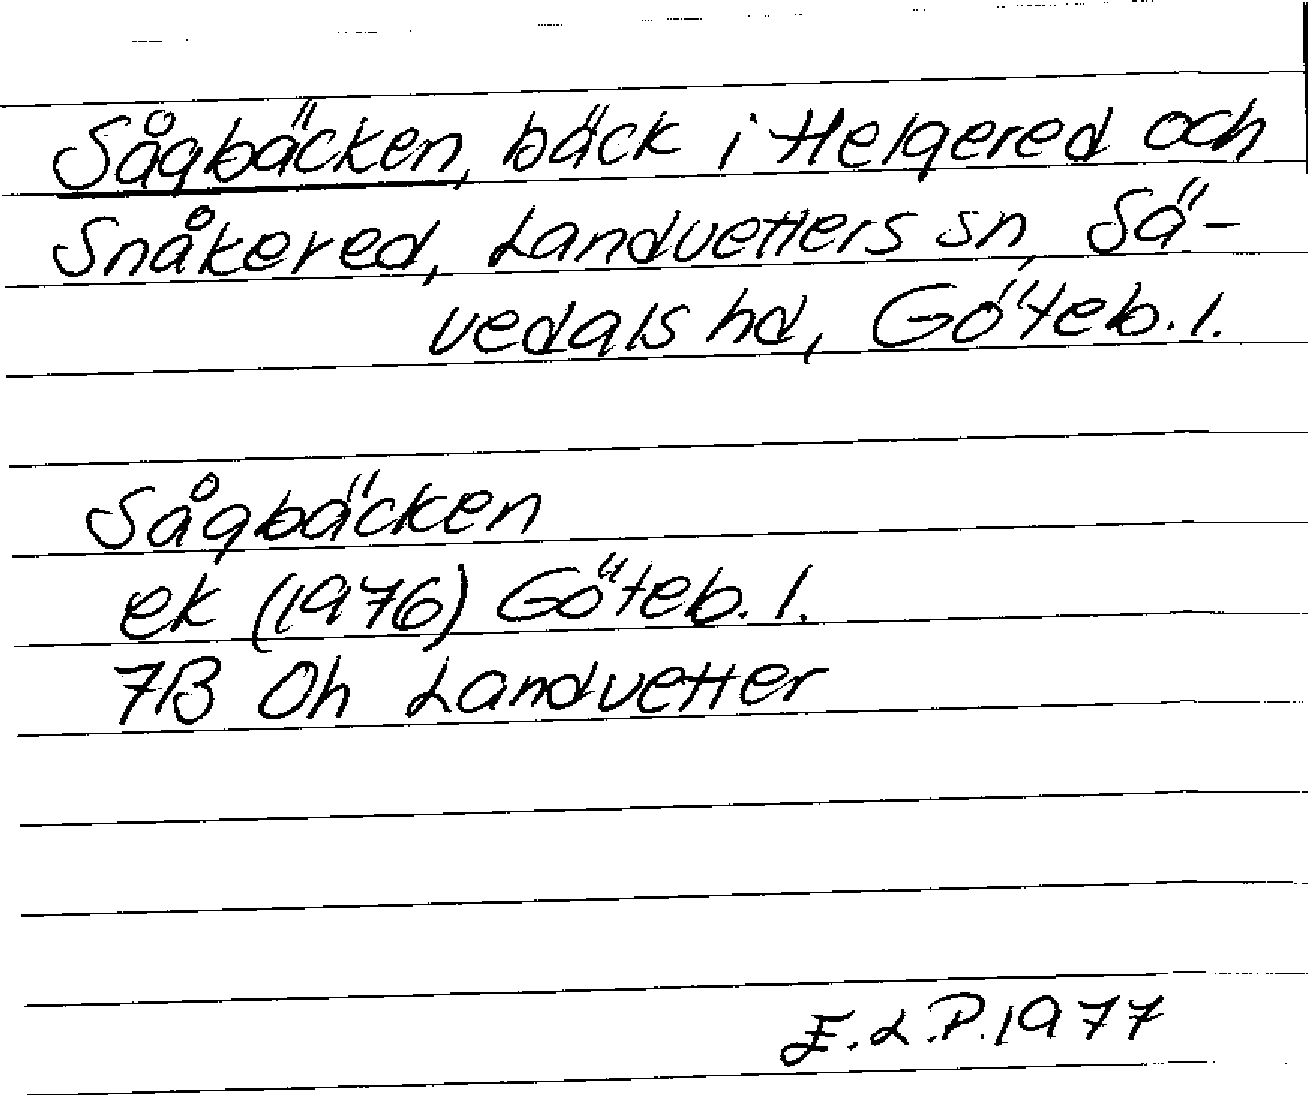 Sågbäcken, bäck i Helgered och
Snåkered, Landvetters sn, Sä-
vedals hd, Göteb. l.
Sågbäcken
ek (1976) Göteb. l.
7B 0h Landvetter
E.L.P. 1977